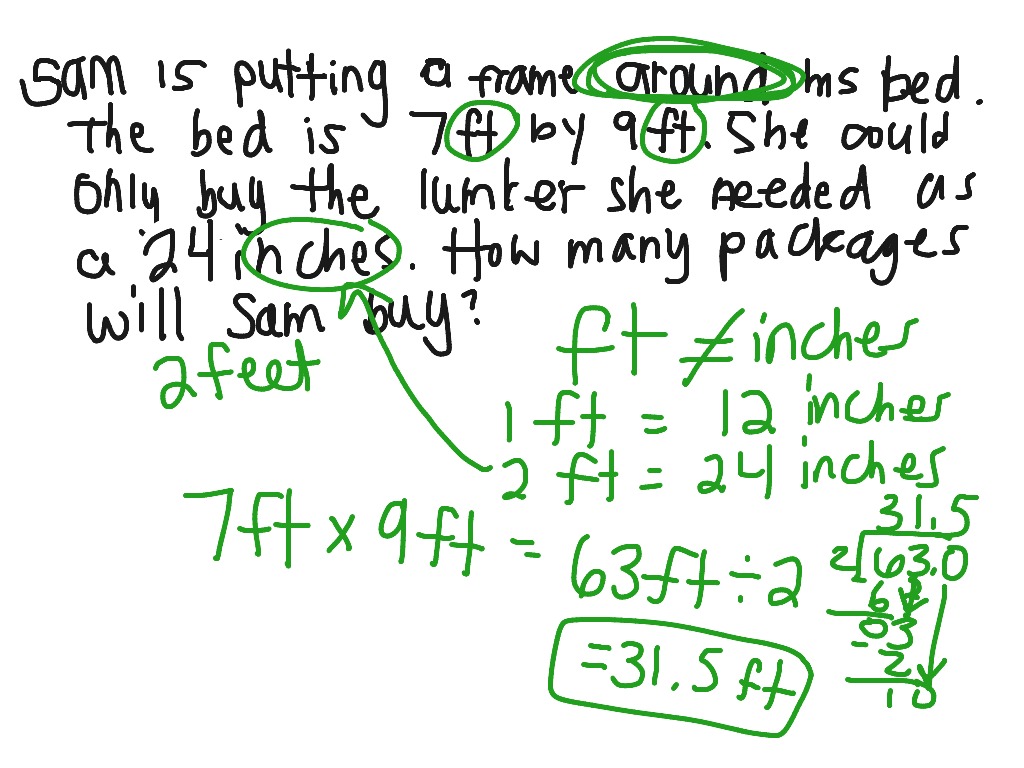 Sam is putting a frame around his bed.
The bed is 7ft by 9ft. She could
only buy the lumber she needed as
a 24 inches. How many packages
will Sam buy?
2 feet
ft ≠ inches
1 ft = 12 inches
2 ft = 24 inches
7ft x 9ft = 63ft ÷ 2
= 31.5 ft
31.5
2 63.0
6
03
2
10